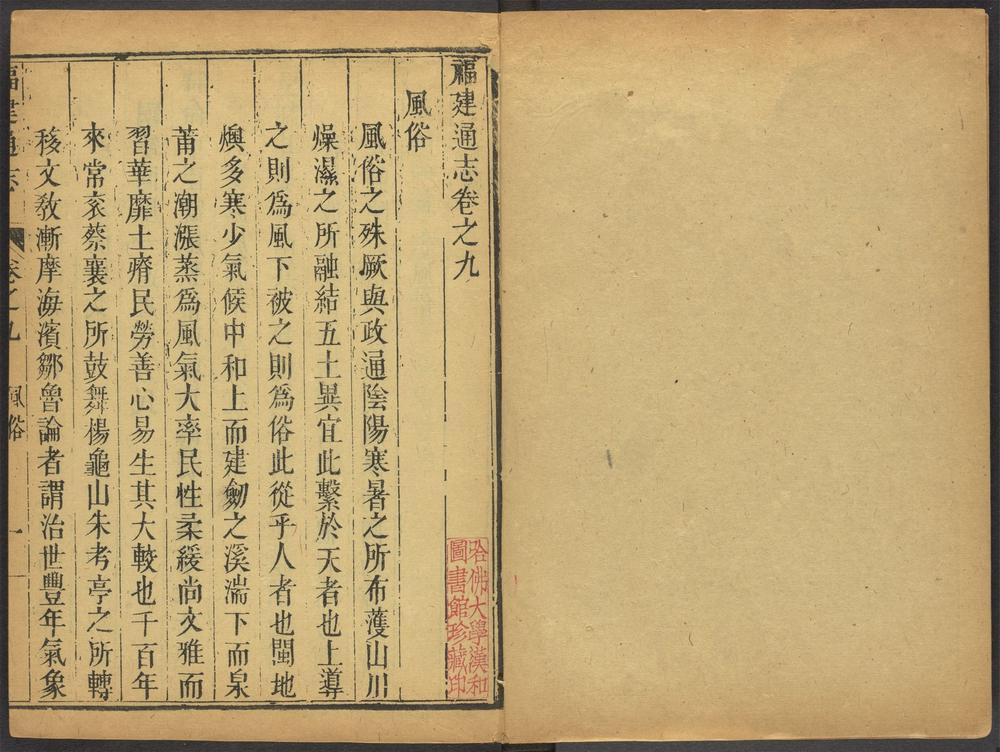 福建通志卷之九
風俗
風俗之殊厥與政通陰陽寒暑之所布濩山川
燥濕之所融結五土異宜此繫於天者也上導
之則爲風下被之則爲俗此從乎人者也閩地
燠多寒少氣候中和上而建劒之溪湍下而泉
莆之潮漲蒸爲風氣大率民性柔緩尚文雅而
習華靡土瘠民勞善心易生其大較也千百年
來常袞蔡襄之所鼓舞楊龜山朱考亭之所轉
移文敎漸摩海濱鄒魯論者謂治世豐年氣象
福建通志
卷之九
風俗
一
哈佛大學漢和
圖書館珍藏印